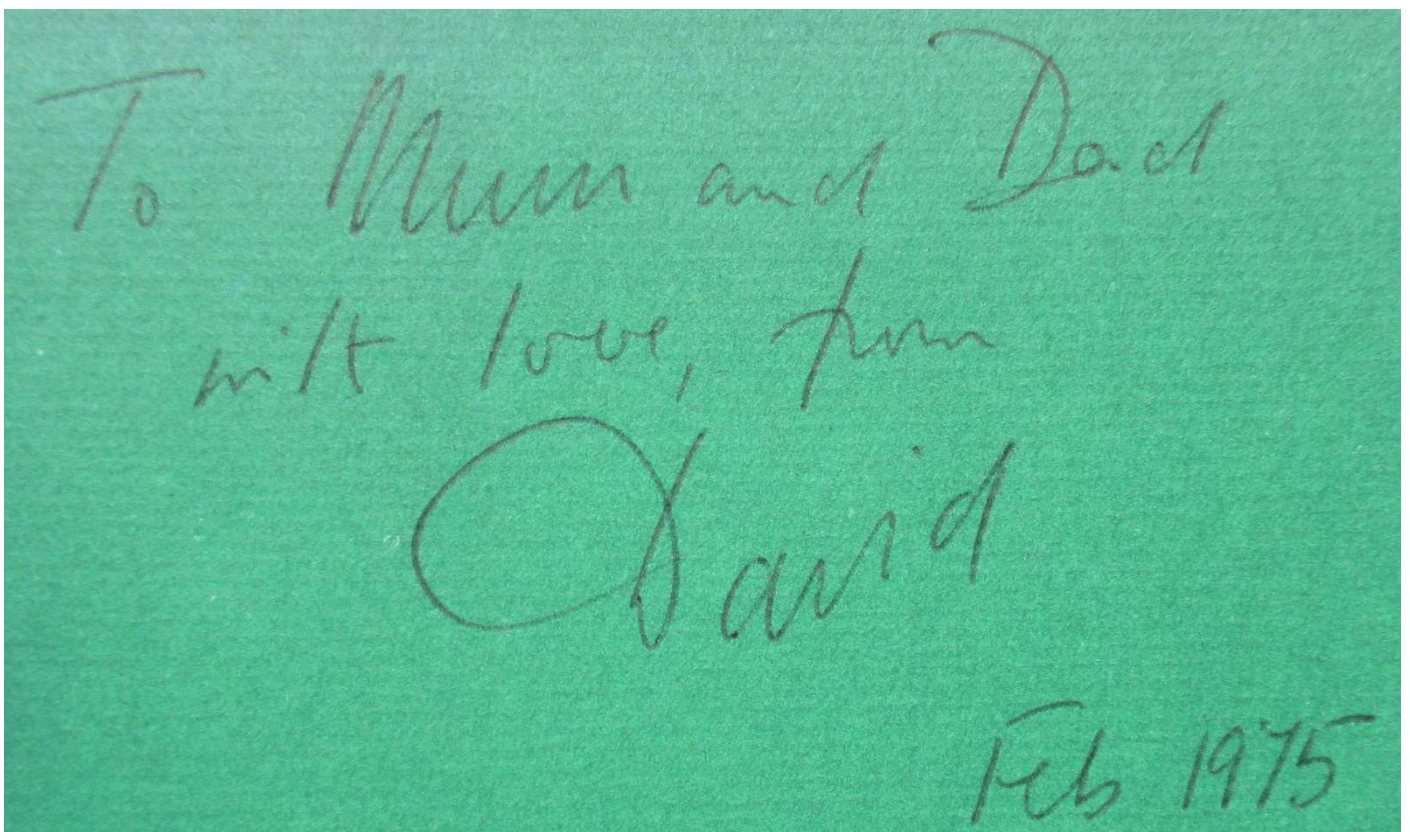 To Mum and Dad
with love, from
David
Feb 1975